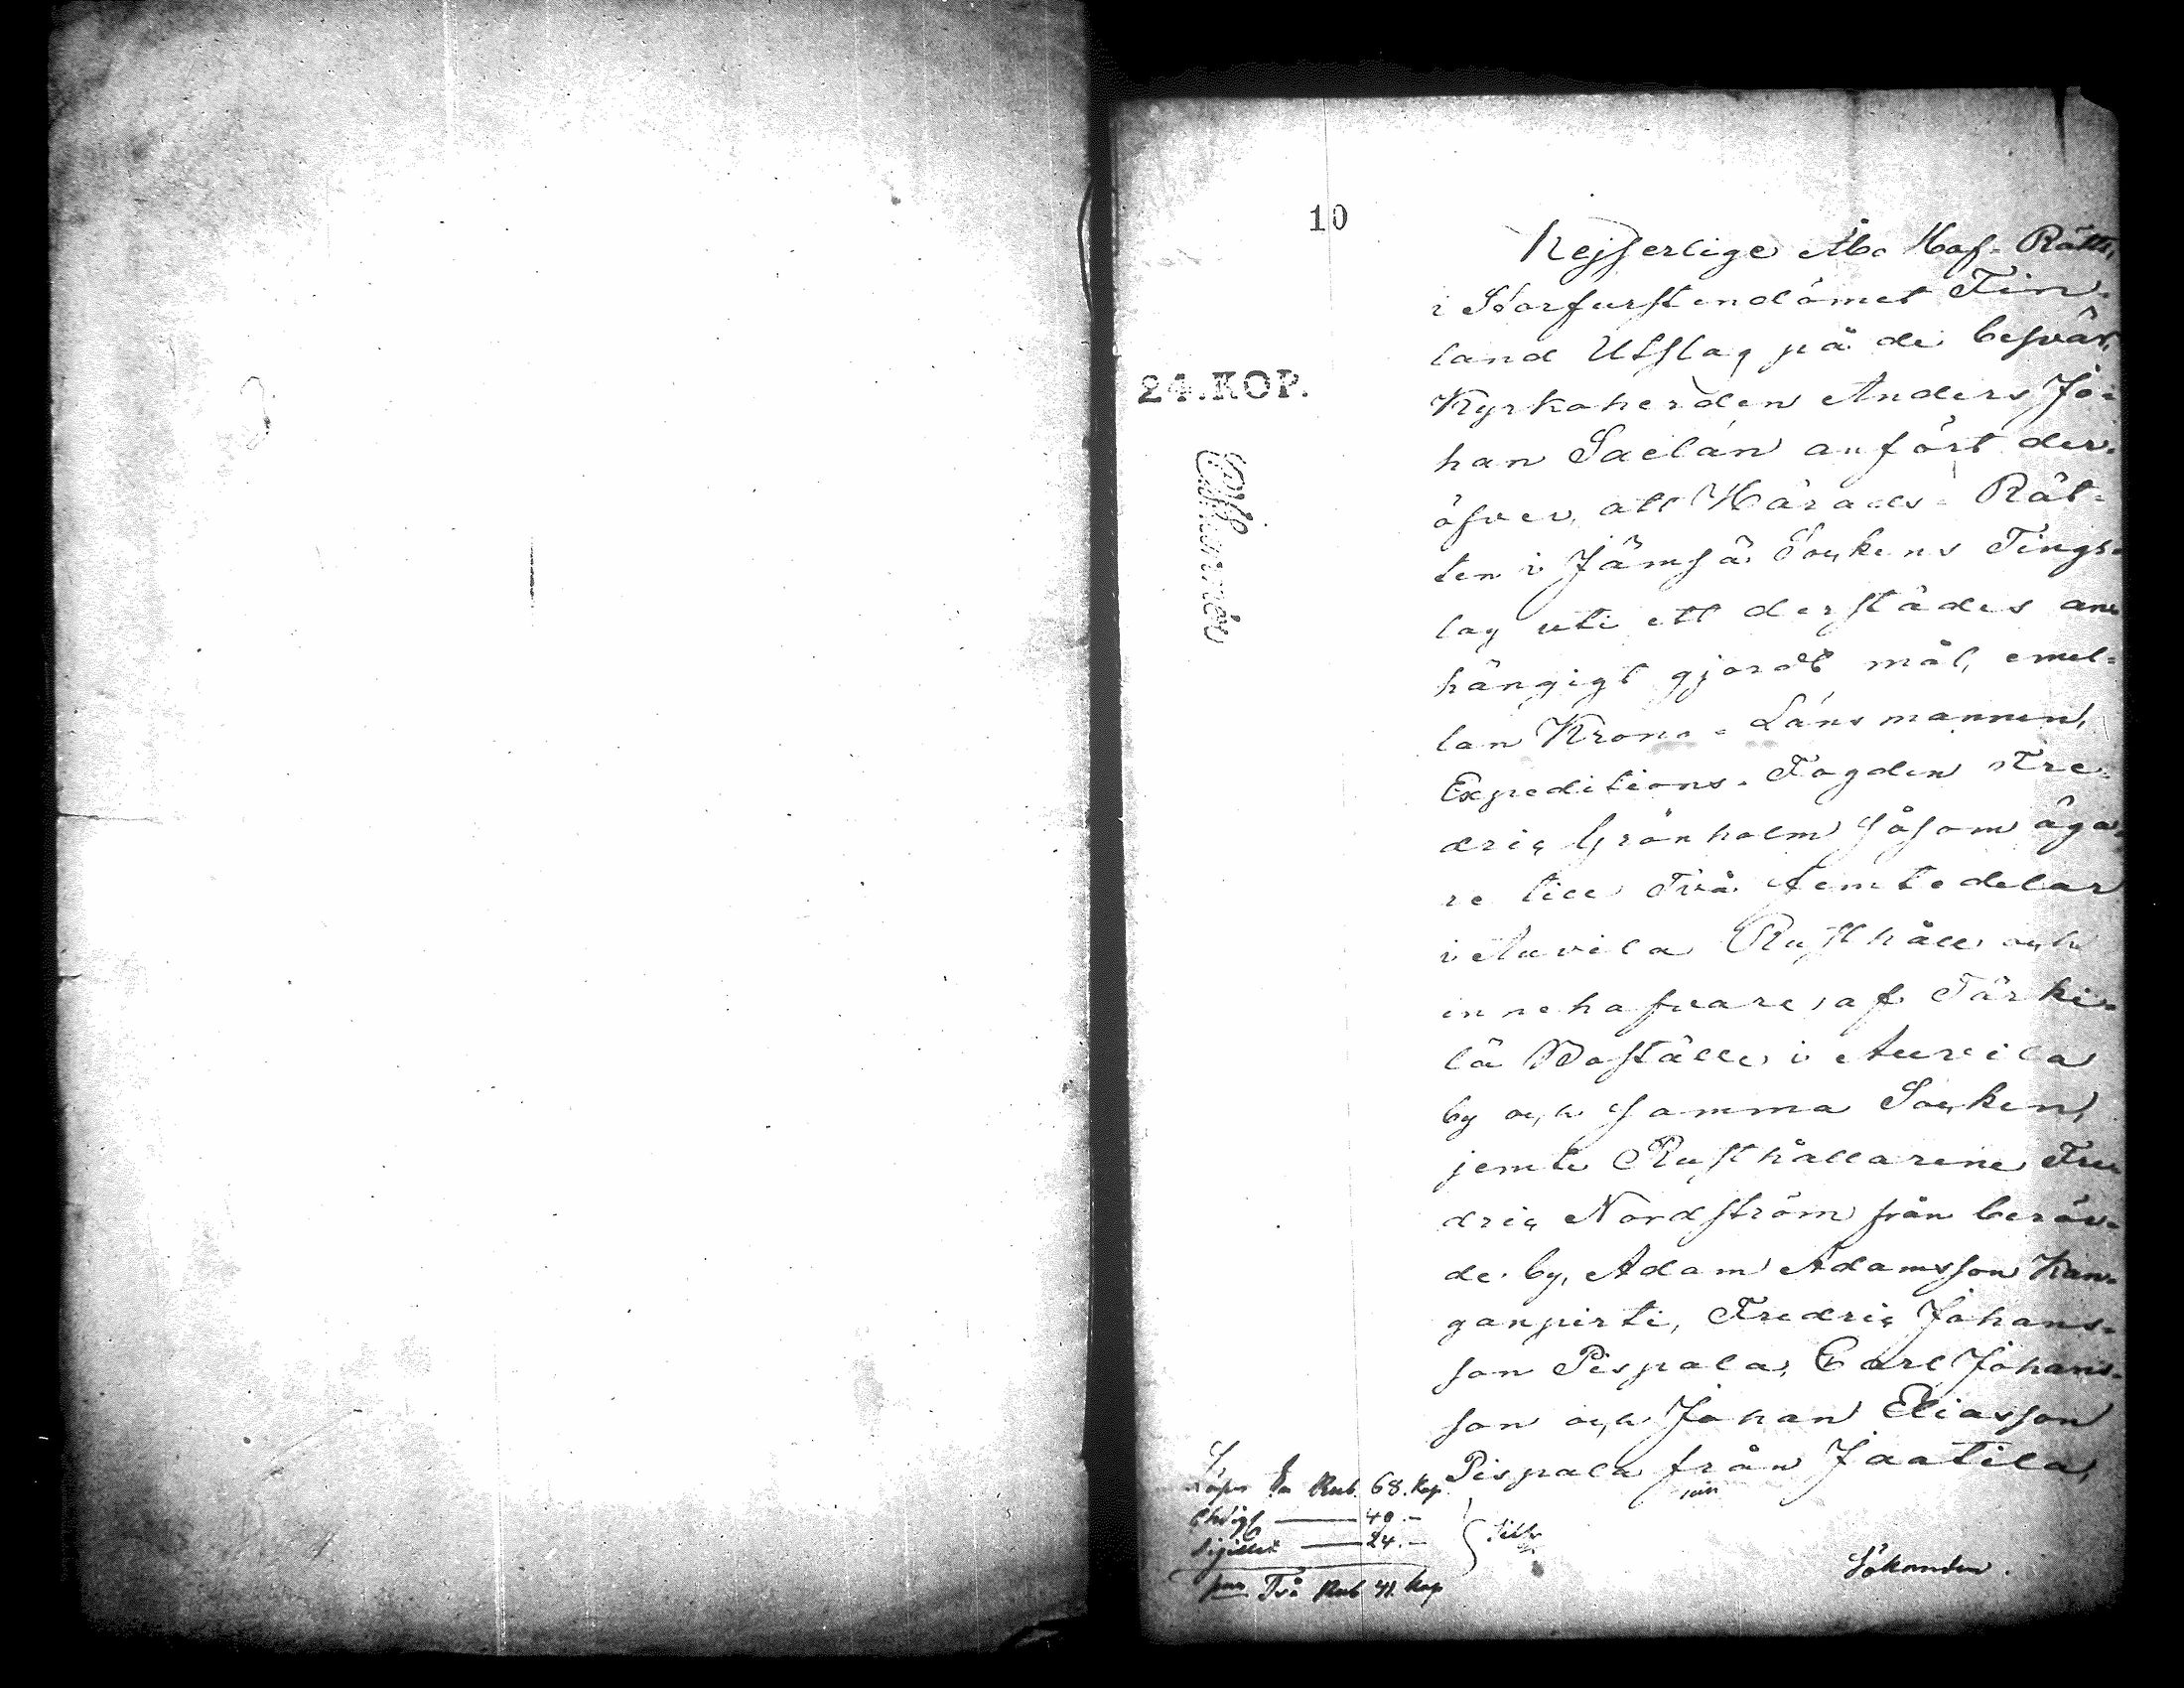 10
24.KOP.
Kejserlige Åbo Hof-Rätts,
i Storfurstendömet Fin-
land Utslag på de besvär,
Kyrkoherden Anders Jo-
han Saelan anfört der-
öfver, att Härads-Rät-
ten i Jämsä Sockens Tings-
lag uti ett derstädes an-
hängigt gjordt mål, emel-
lan Krono-Länsmannen,
Expeditions-Fogden Fre-
dric Grönholm såsom äga-
re till Två femtedelar
i Auvila Rusthåll och
innehafvare af Tärki-
lä Boställe i Auvila
by och samma Socken,
jemte Rusthållarene Fre-
dric Nordström från berör-
de by, Adam Adamsson Kan-
ganpirti, Fredric Johans-
son Pispala, Carl Johans-
son och Johan Eliasson
Pispala från Jaatila,
Rub. 68. kop
40.-
Sigillet 24.-
Två Rub 41. kop
Sökanden.